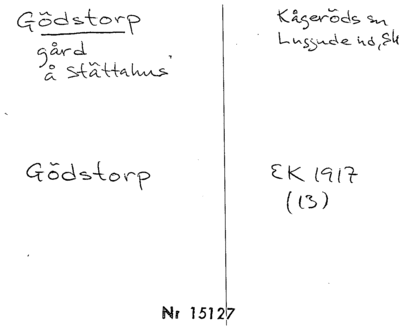 Gödstorp
gård
å Stättahus
Kågeröds sn
Luggude hd, Sk
Gödstorp
EK 1917
(13)
Nr 15127